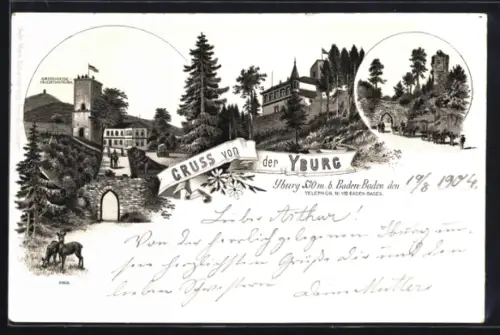 GRUSS von der YBURG
Yburg 520 m. b. Baden-Baden den 19/8 1904.
TELEPHON BADEN-BADEN
Lieber Arthur!
Von der herrlich gelegenen Yburg un-
sere herzlichsten Grüße dir und den
lieben Schwestern
Deine Mutter